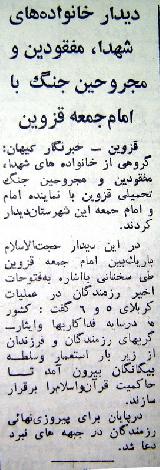 دیدار خانواده‌های
شهدا، مفقودین و
مجروحین جنگ با
امام‌جمعه قزوین
قزوین – خبرنگار کیهان:
گروهی از خانواده های شهدا،
مفقودین و مجروحین جنگ
تحمیلی قزوین با نماینده امام
و امام جمعه این شهرستان‌دیدار
کردند.
در این دیدار حجت‌الاسلام
باریک‌بین امام‌جمعه قزوین
طی سخنانی بااشاره به‌فتوحات
اخیر رزمندگان در عملیات
کربلای ۵ و ۶ گفت : کشور
ما درسایه فداکاریها وایثار–
گریهای رزمندگان و فرزندان
از زیر بار استعمار وسلطه
بیگانگان بیرون آمد تا
حاکمیت قرآن‌واسلام‌را برقرار
سازند.
درپایان برای پیروزی‌نهائی
رزمندگان در جبهه های نبرد
دعا شد.